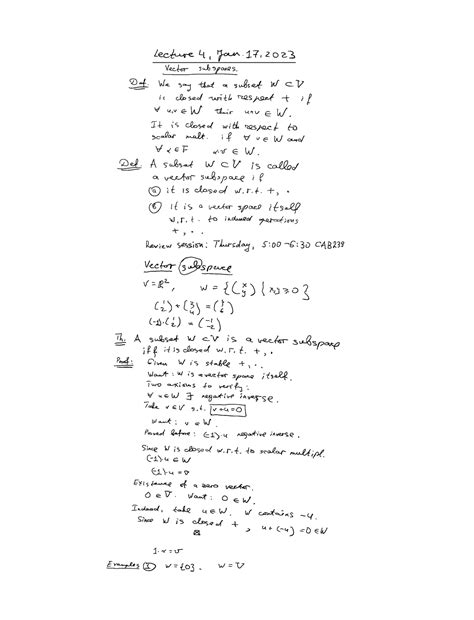 Lecture 4, Jan. 17. 2023
Vector subspaces.
Def. We say that a subset W ⊂ V
is closed with respect + if
∀ u,v ∈ W their u+v ∈ W.
It is closed with respect to
scalar mult. if ∀ v ∈ W and
∀ α ∈ F α·v ∈ W.
Def A subset W ⊂ V is called
a vector subspace if
ⓐ it is closed w.r.t. +, ·
ⓑ it is a vector space itself
w.r.t. to induced operations
+, · .
Review session: Thursday, 5:00-6:30 CAB239
Vector subspace
V = ℝ², W = {(x y) | x,y ≥ 0}
(1 2) + (3 4) = (4 6)
(-1)·(1 2) = (-1 -2)
Th. A subset W ⊂ V is a vector subspace
iff it is closed w.r.t. +, ·
Proof: Given W is stable +, ·
Want: W is a vector space itself.
Two axioms to verify:
∀ u ∈ W ∃ negative inverse.
Take v ∈ V s.t. v+u=0
Want: v ∈ W.
Proved before: (-1)·u negative inverse.
Since W is closed w.r.t. to scalar multipl.
(-1)·u ∈ W
(-1)·u = v
Existence of a zero vector.
0 ∈ V. Want: 0 ∈ W.
Indeed, take u ∈ W. W contains -u.
Since W is closed +, u+(-u)=0 ∈ W
1·v=v
Examples ① V={0}. W=V